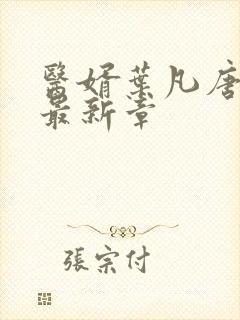 醫婿葉凡唐
最新章
張宗付